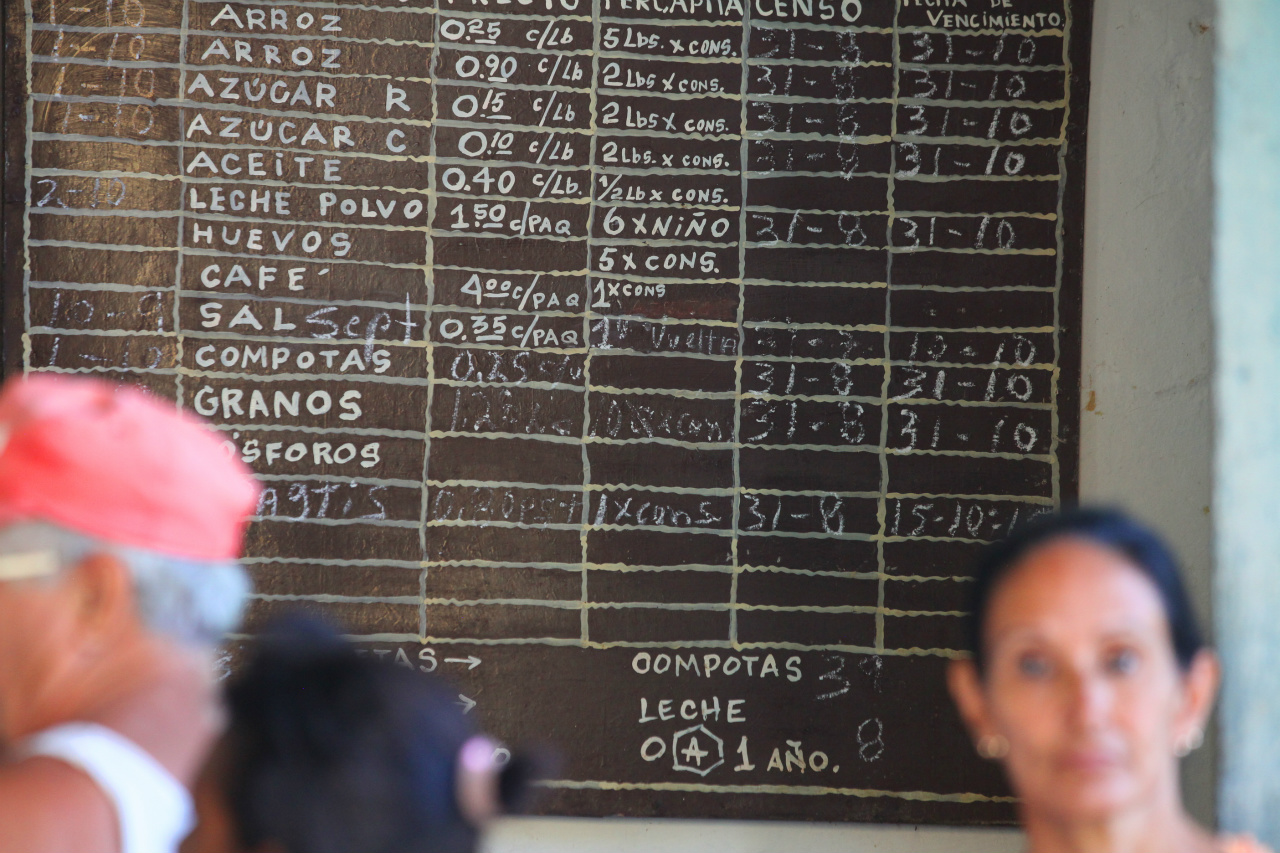 PRECIO PERCAPITA CENSO FECHA DE VENCIMIENTO.
1-10 ARROZ 0.25 c/Lb 5 Lbs. x CONS. 31-8 31-10
1-10 ARROZ 0.90 c/Lb 2 Lbs x CONS. 31-8 31-10
1-10 AZÚCAR R 0.15 c/Lb 2 Lbs x CONS. 31-8 31-10
1-10 AZÚCAR C 0.10 c/Lb 2 Lbs. x CONS. 31-8 31-10
ACEITE 0.40 c/Lb. 1/2 Lb x CONS.
2-10 LECHE POLVO 1.50 c/PAQ 6 x NIÑO 31-8 31-10
HUEVOS 5 x CONS.
CAFÉ 4.00 c/PAQ 1 x CONS
10-9 SAL Sept 0.35 c/PAQ 1ª Vuelta 10-10
1-10 COMPOTAS 0.25 31-8 31-10
GRANOS 31-8 31-10
ÓSFOROS
1 x cons 31-8 15-10
TAS→ COMPOTAS 39
→ LECHE
0 A 1 AÑO. 8